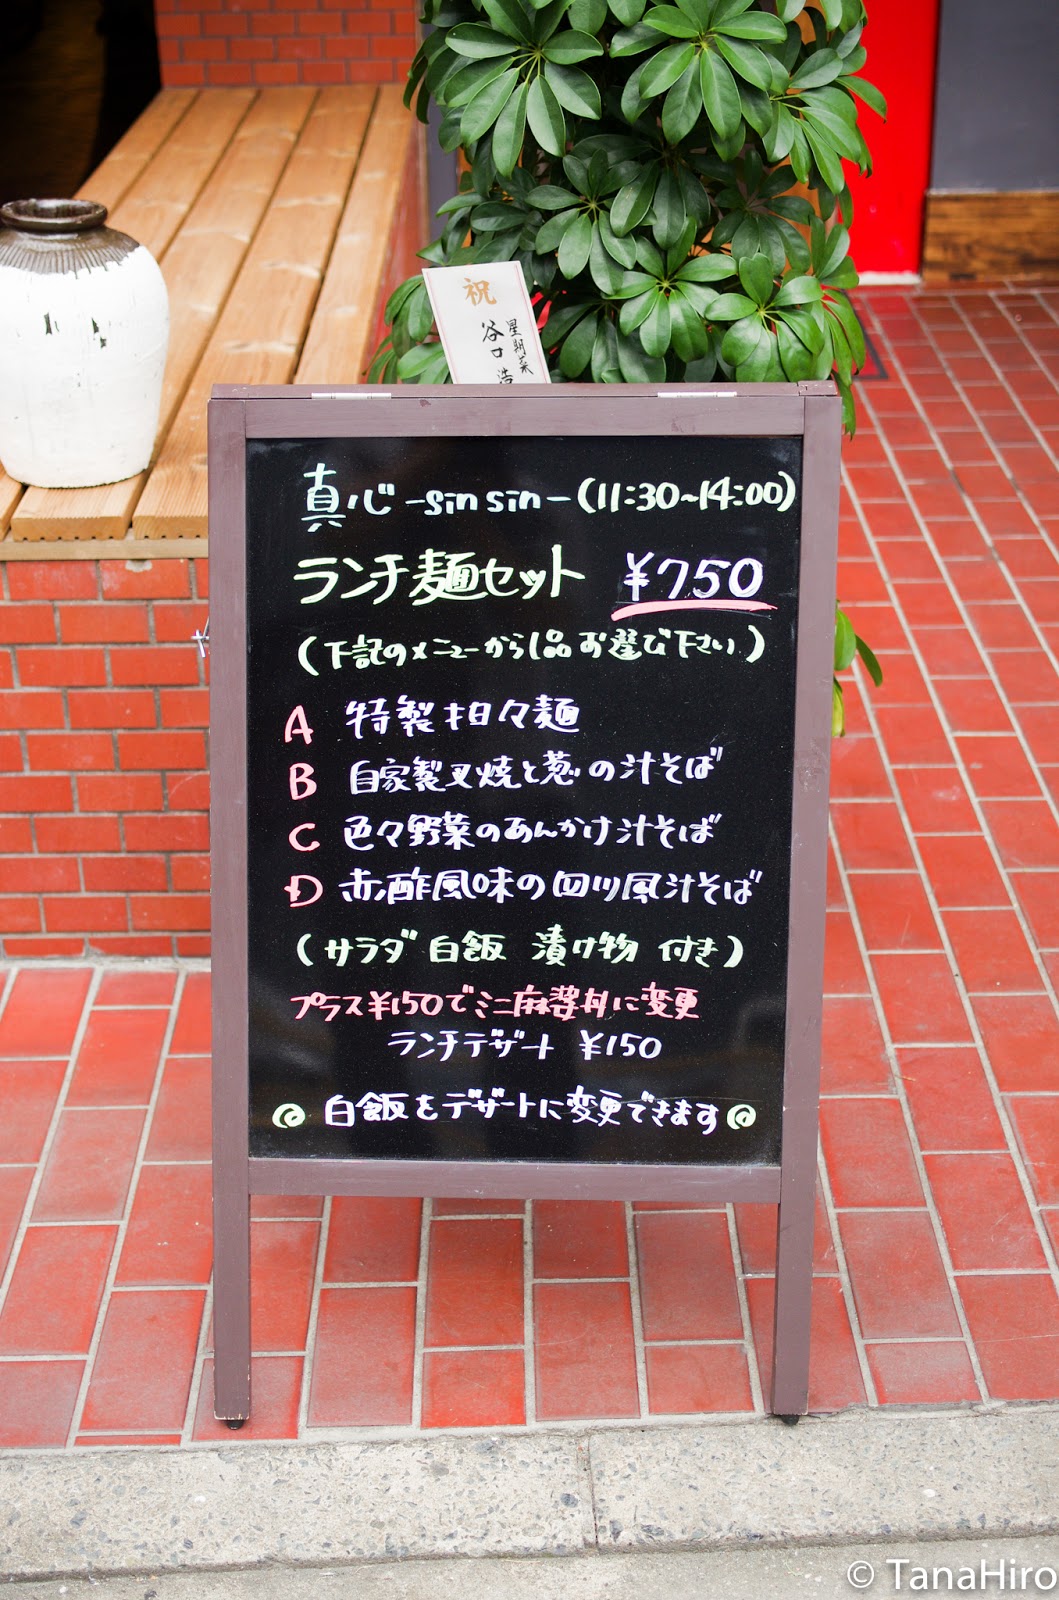 祝
星期菜
谷口 浩
真心 -sin sin- (11:30~14:00)
ランチ麺セット ¥750
(下記のメニューから1品お選び下さい)
A 特製担々麺
B 自家製叉焼と葱の汁そば
C 色々野菜のあんかけ汁そば
D 赤酢風味の四川風汁そば
(サラダ 白飯 漬け物 付き)
プラス¥150でミニ麻婆丼に変更
ランチデザート ¥150
白飯をデザートに変更できます
© TanaHiro